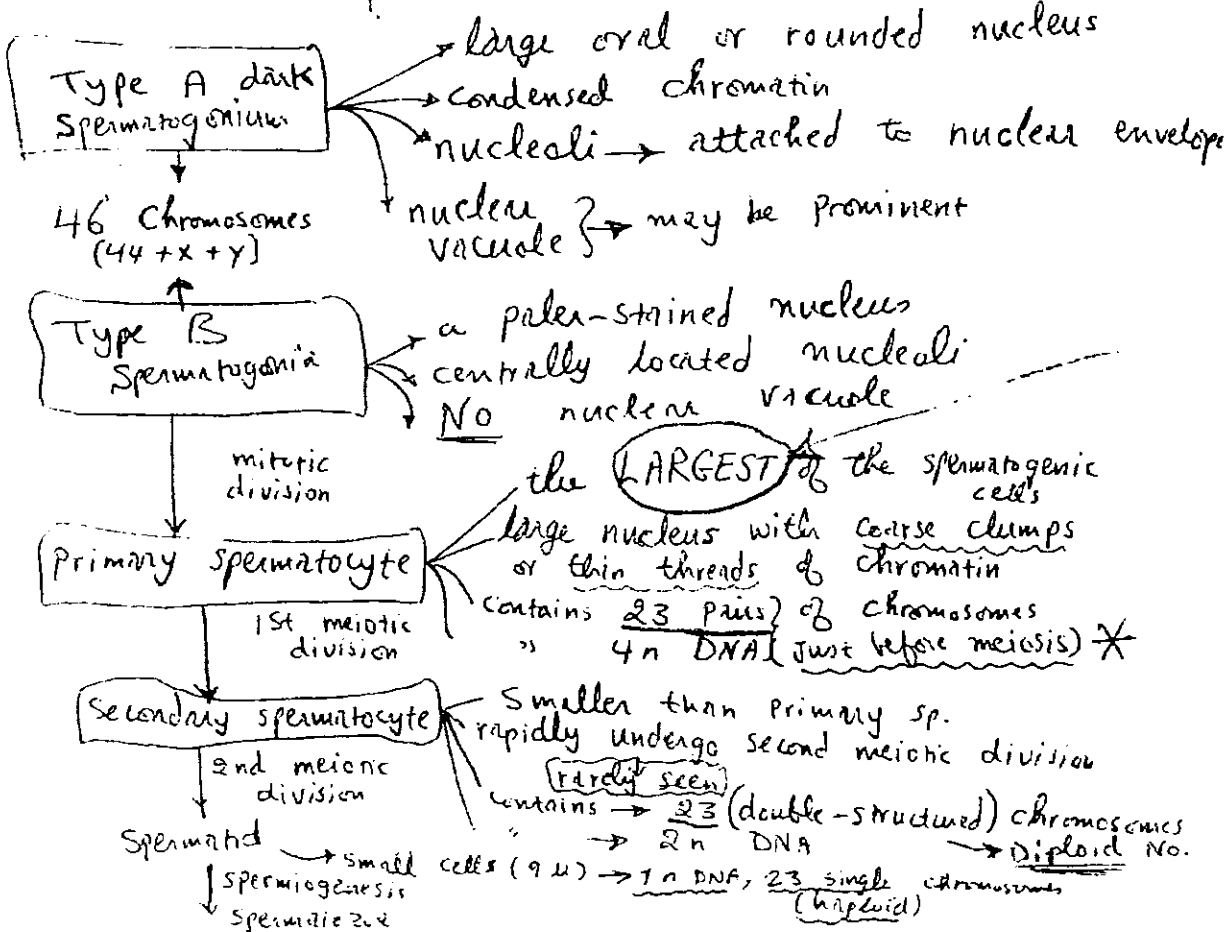 Type A dark
Spermatogonium
large oval or rounded nucleus
condensed chromatin
nucleoli → attached to nuclear envelope
nuclear
vacuole } → may be prominent
46 Chromosomes
(44 + X + Y)
Type B
Spermatogonia
a paler-stained nucleus
centrally located nucleoli
NO nuclear vacuole
mitotic
division
the LARGEST of the spermatogenic
cells
Primary spermatocyte
large nucleus with coarse clumps
or thin threads of chromatin
contains 23 pairs } of chromosomes
" 4n DNA (just before meiosis) *
1st meiotic
division
Secondary spermatocyte
Smaller than Primary sp.
rapidly undergo second meiotic division
rarely seen
contains → 23 (double-structured) chromosomes
" → 2n DNA → Diploid No.
2nd meiotic
division
Spermatid
→ small cells (9 μ) → 1n DNA, 23 single chromosomes
(haploid)
spermiogenesis